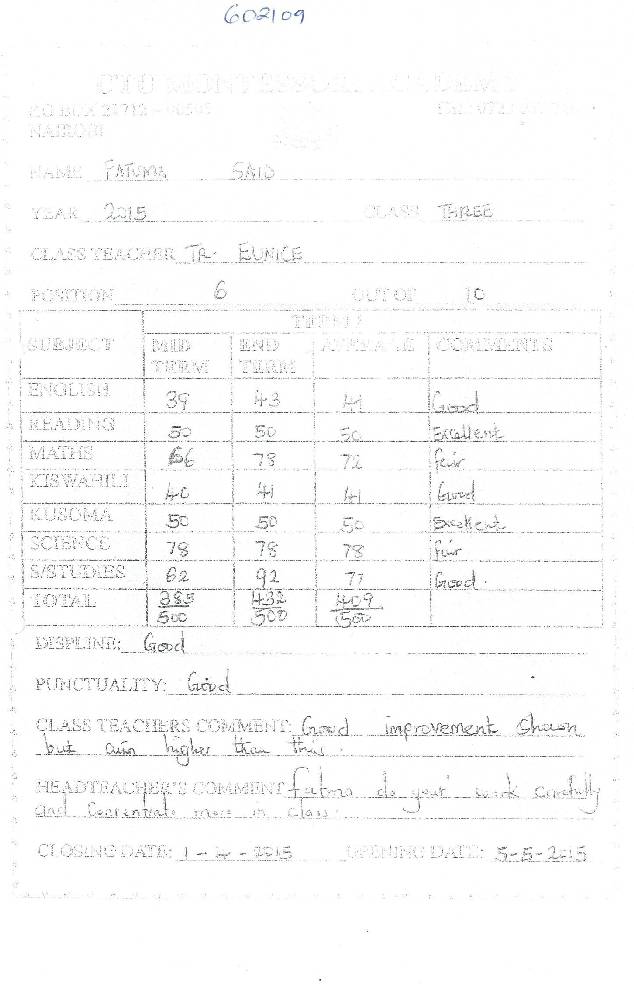 602109
MONTESSORI ACADEMY
P.O BOX 21712 - 00505
NAIROBI
NAME FATUMA SAID
YEAR 2015 CLASS THREE
CLASS TEACHER TR. EUNICE
POSITION 6 OUT OF 10
TERM 1
SUBJECT MID TERM END TERM AVERAGE COMMENTS
ENGLISH 39 43 41 Good
READING 50 50 50 Excellent
MATHS 66 78 72 fair
KISWAHILI 40 41 41 Good
KUSOMA 50 50 50 Excellent
SCIENCE 78 78 78 fair
S/STUDIES 62 92 77 Good.
TOTAL 385/500 432/500 409/500
DISPLINE: Good
PUNCTUALITY: Good
CLASS TEACHERS COMMENT: Good improvement shown
but aim higher than this.
HEADTEACHER'S COMMENT fatma do your work carefully
and Concentrate more in class.
CLOSING DATE: 1-4-2015 OPENING DATE: 5-5-2015